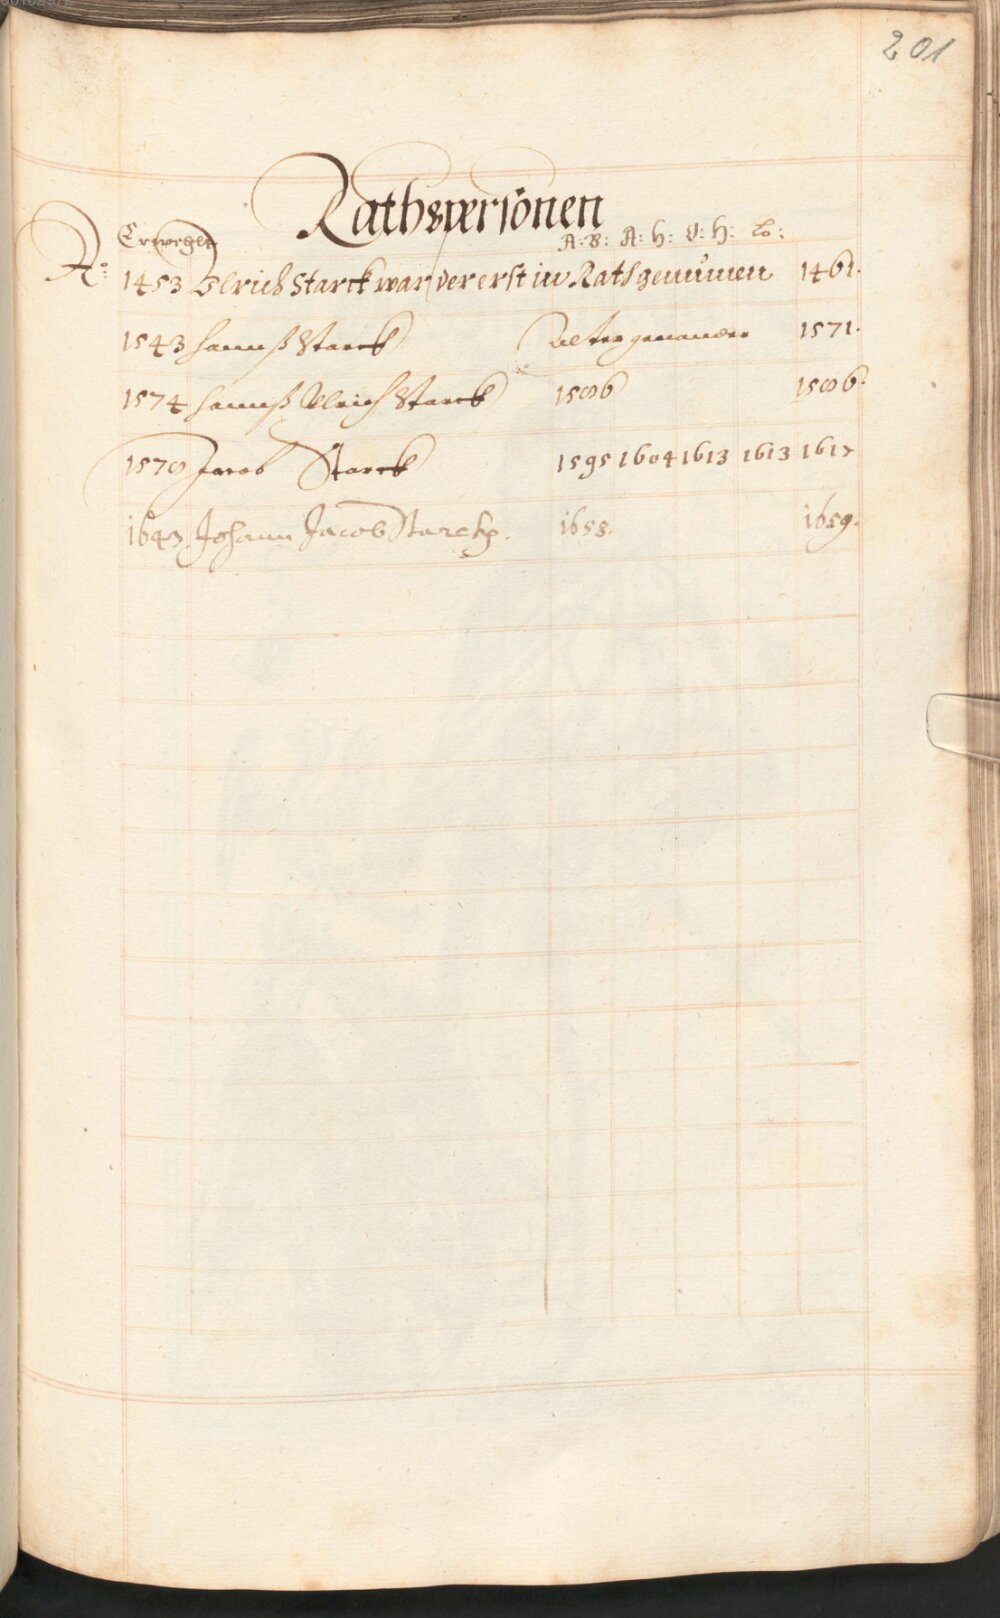 201
Rathspersonen
Erwehlt A: B: A: H: O: H: Lo:
Ao: 1453 Ulrich Starck war der erst in Rath genummen 1461.
1543 Hannß Starck Alter genander 1571.
1574 Hannß Ulrich Starck 1586 1586.
1579 Jacob Starck 1595 1604 1613 1613 1617
1643 Johann Jacob Starckh. 1658. 1659.